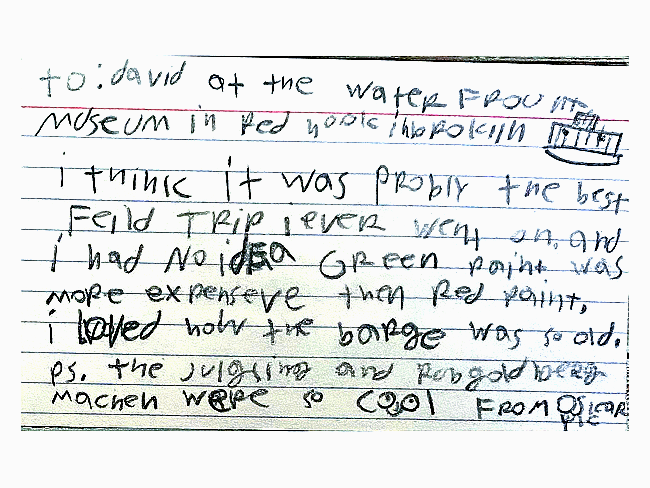 to: david at the water Frount
Museum in Red hook inbroklin
i think it was probly the best
Feild TRip i ever went on. and
i had No idEa GReen paint was
more expenseve then Red paint.
i loved how the barge was so old.
ps. the julgling and
machen were so cool FROM Oscar